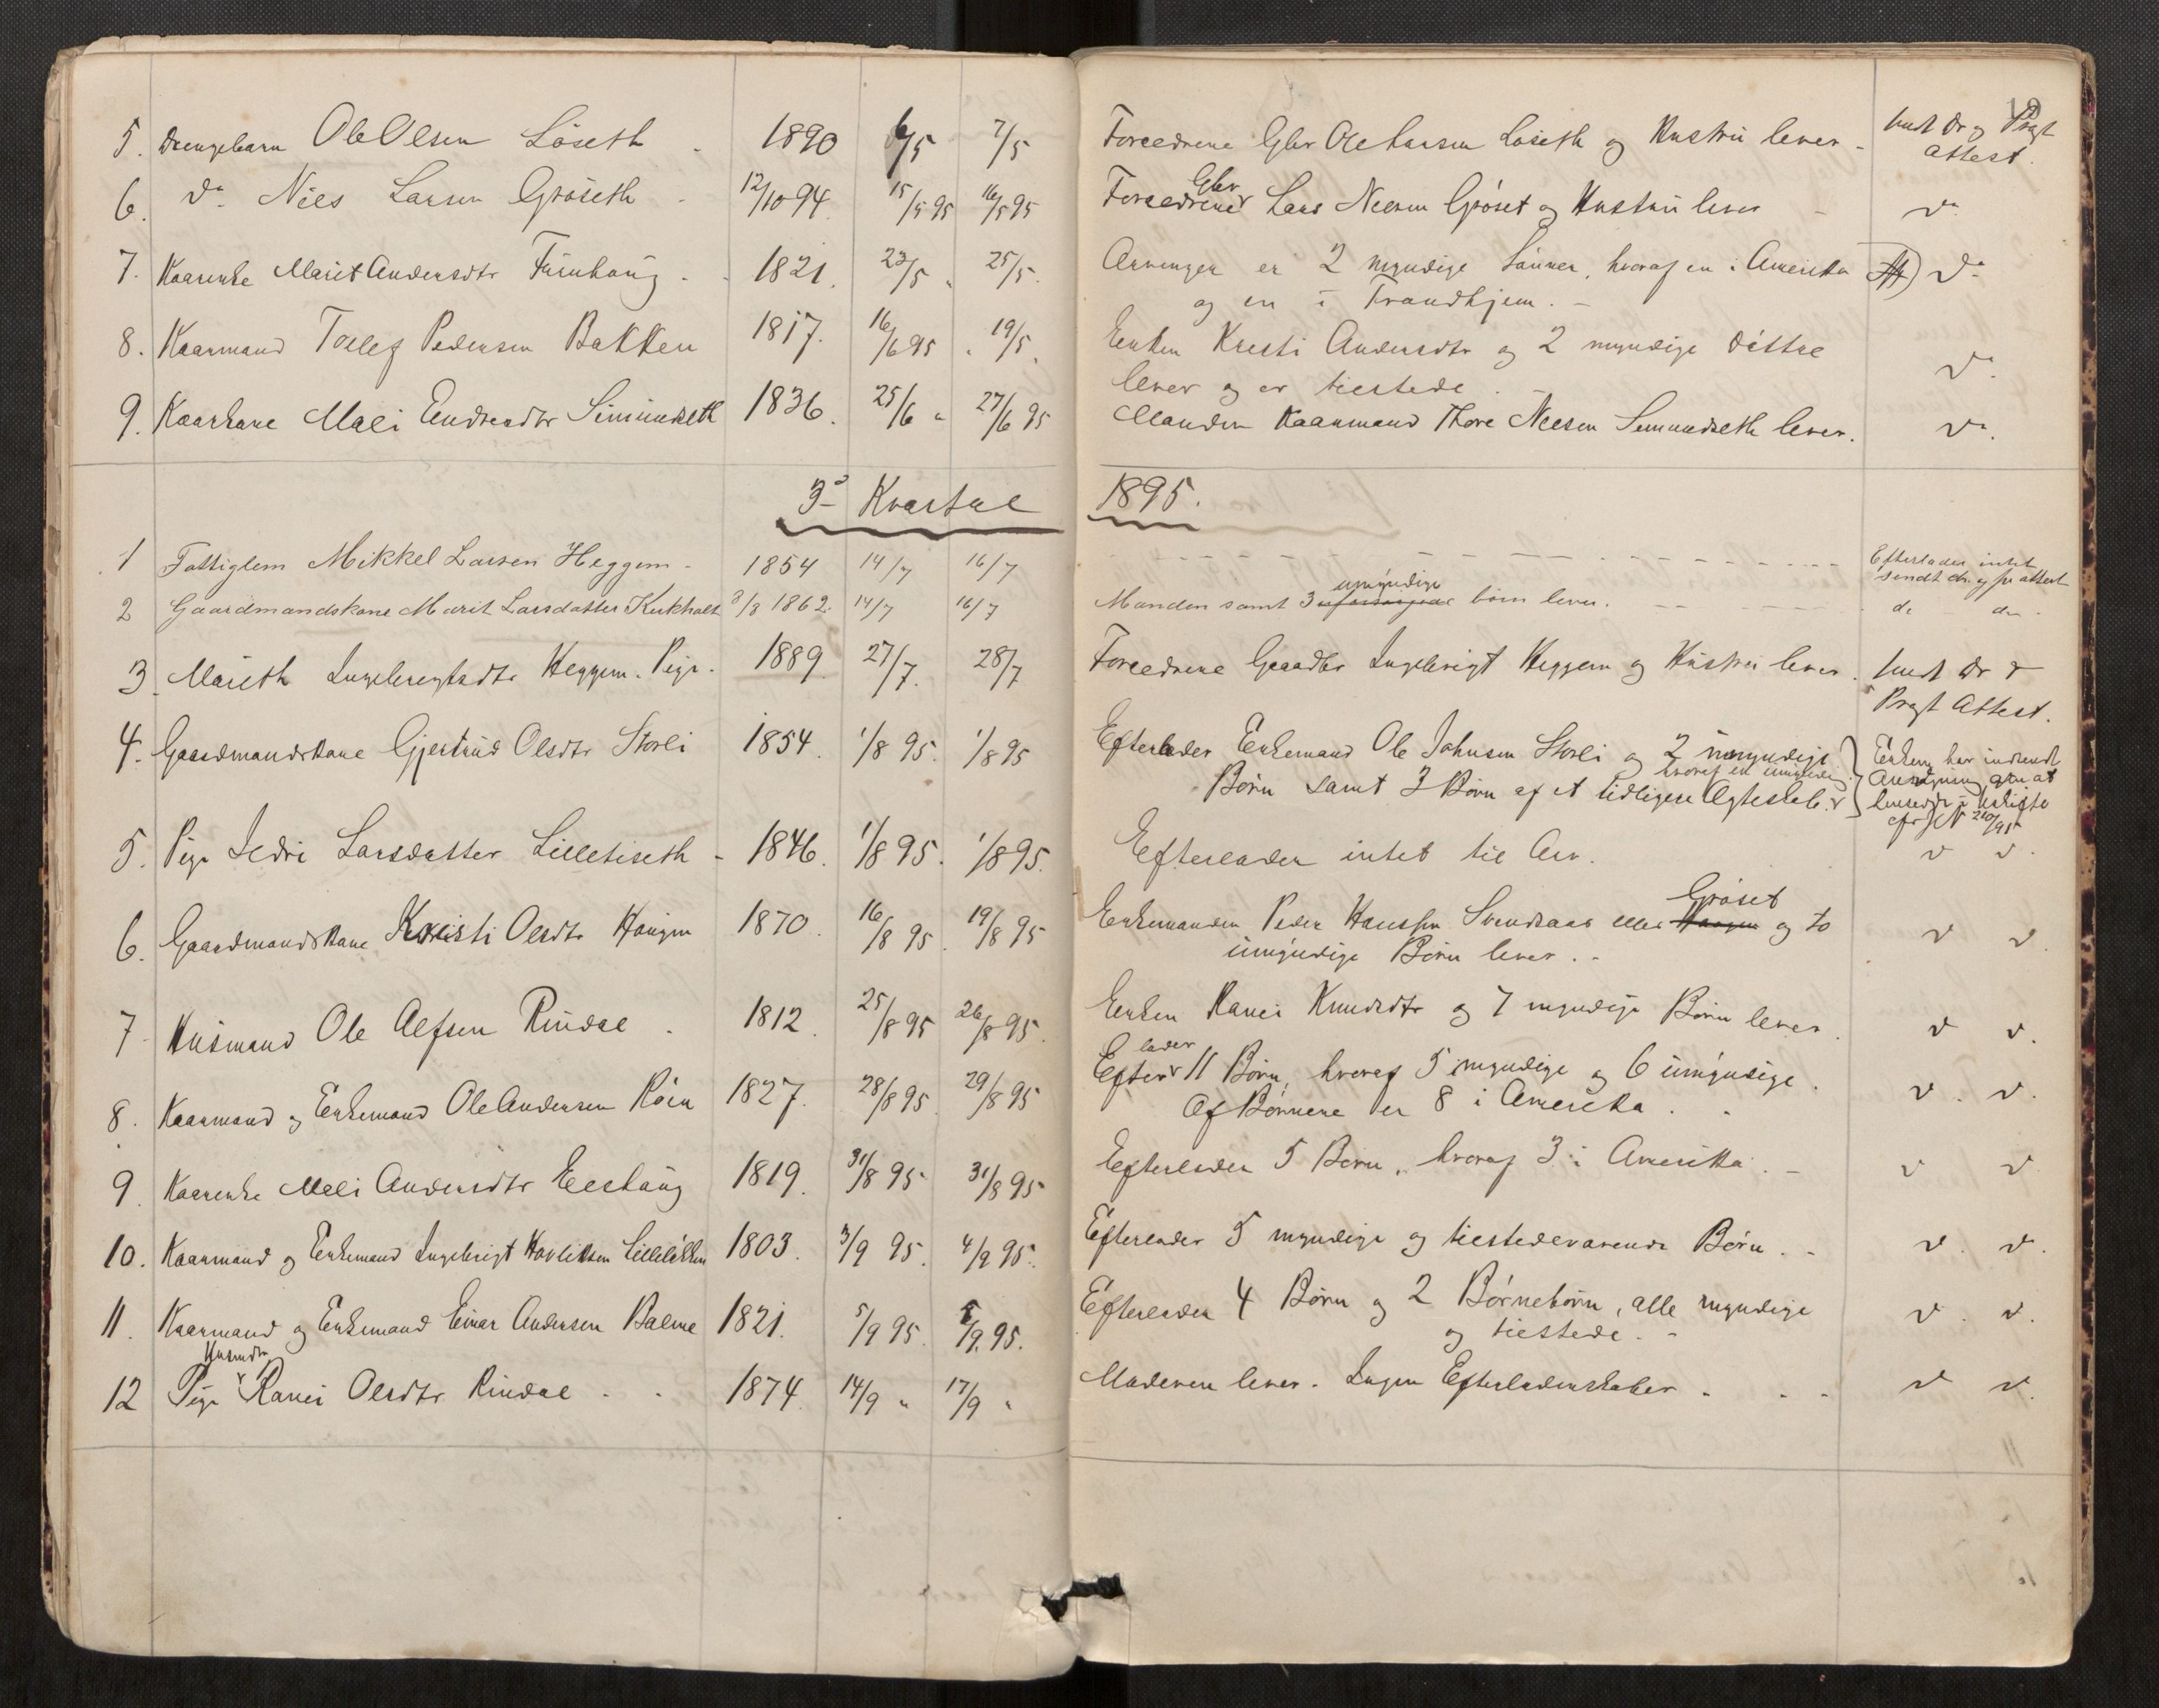 5. Drengebarn Ole Olsen Löseth - 1890 6/5 7/5 Forældrene Gbr Ole Larsen Löseth og Hustru lever - sendt Dr og Prgt
Attest.
6. Do Niels Larsen Gröseth - 12/10 94. 15/5 95 16/5 95 Forældrene Gbr Lars Nielsen Gröset og Hustru lever - Do
7. Kaarenke Marit Andersdtr Furuhaug - 1821. 23/5 " 25/5. Arvinger er 2 myndige Sönner, hvoraf en i Amerika Do
og en i Trondhjem. -
8. Kaarmand Tollef Pedersen Bakken 1817. 16/6 95 " 19/5. Enken Kresti Andersdtr og 2 myndige Döttre
lever og er tilstede. - Do
9. Kaarkone Mali Endresdtr Simundseth 1836. 25/6 " 27/6 95 Manden Kaarmand Thore Nilsen Simundseth lever. Do.
3die Kvartal 1895.
1 Fattiglem Mikkel Larsen Heggem - 1854 14/7 16/7 Efterlader intet
sendt dr. og pr attest
2 Gaardmandskone Marit Larsdatter Kukholt 3/3 1862. 14/7 16/7 Manden samt 3 umyndige börn lever. do do.
3. Mareth Ingebrigtsdtr Heggem. Pige. 1889. 27/7. 28/7 Forældrene Gaardbr Ingebrigt Heggem og Hustru lever. sendt Dr &
Prgt Attest.
4. Gaardmandskone Gjertrud Olsdtr Storli 1854. 1/8 95. 1/8 95 Efterlader Enkemand Ole Johnsen Storli og 2 umyndige
Börn samt 3 Börn af et tidligere Ægteskab. hvoraf en umyndig.
Enkem har indsendt
5. Pige Sedri Larsdatter Lilletiseth - 1846. 1/8 95. 1/8 95. Efterlader intet til Arv. v v.
6. Gaardmandskone Kresti Olsdtr Haugen 1870. 16/8 95. 19/8 95 Enkemanden Peder Hanssen Svendsaas eller Haugen Gröset og to
umyndige Börn lever. - v v.
7. Husmand Ole Alfsen Rindal. 1812. 25/8 95 26/8 95. Enken Ranei Knudsdtr og 7 myndige Börn lever. v v.
8. Kaarmand og Enkemand Ole Andersen Röen 1827. 28/8 95. 29/8 95 Efterlader 11 Börn, hvoraf 5 myndige og 6 umyndige.
Af Börnene er 8 i Amerika. v. v.
9. Kaarenke Mali Andersdtr Eeshaug 1819. 31/8 95 31/8 95 Efterlader 5 Börn, hvoraf 3 i Amerika. - v v
10. Kaarmand og Enkemand Ingebrigt Havliksen Lillelökken 1803. 3/9 95. 4/9 95. Efterlader 5 myndige og tilstedeværende Börn. - v. v.
11. Kaarmand og Enkemand Einar Andersen Balme 1821. 5/9 95. 5/9. 95. Efterlader 4 Börn og 2 Börnebörn, alle myndige
og tilstede. - v. v.
12 Pige Husmdtr Ranei Olsdtr Rindal. 1874. 14/9 " 17/9 " Moderen lever. Ingen Efterladenskaber. v v.